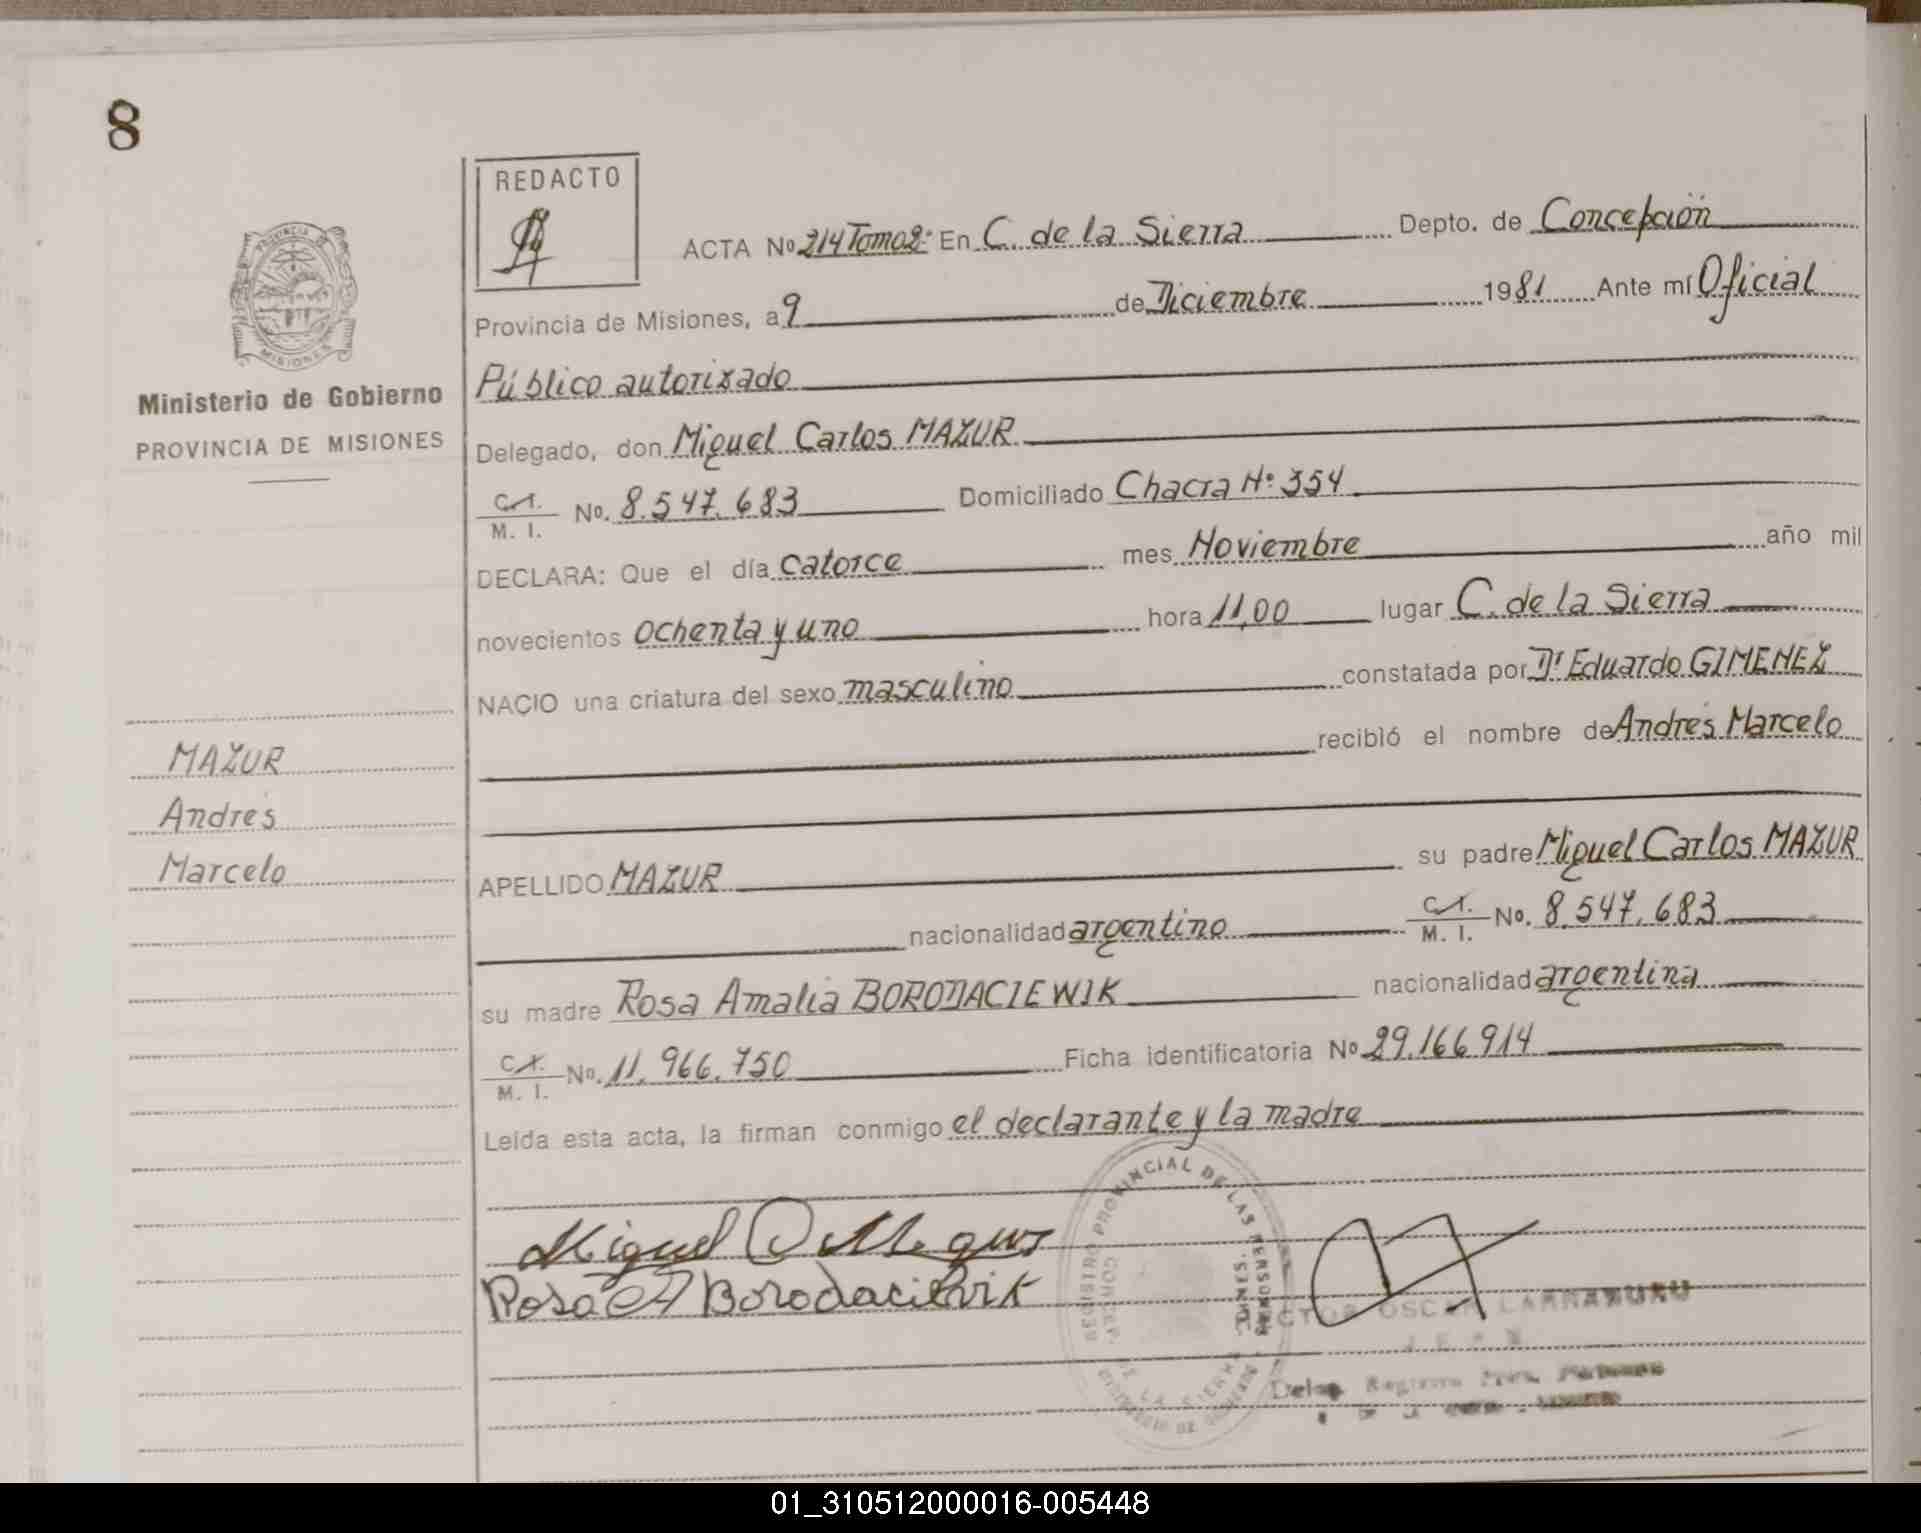 8
REDACTO
ACTA No 214 Tomo 2º En C. de la Sierra Depto. de Concepción
Provincia de Misiones, a 9 de Diciembre 1981 Ante mí Oficial
Público autorizado
Delegado, don Miguel Carlos MAZUR
C.I. M. I. No. 8.547.683 Domiciliado Chacra Nº 354
DECLARA: Que el día catorce mes Noviembre año mil
novecientos ochenta y uno hora 11,00 lugar C. de la Sierra
NACIO una criatura del sexo masculino constatada por Dr Eduardo GIMENEZ
recibió el nombre de Andrés Marcelo
APELLIDO MAZUR su padre Miguel Carlos MAZUR
nacionalidad argentino C.I. M. I. No. 8.547.683
su madre Rosa Amalia BORODACIEWIK nacionalidad argentina
C.I. M. I. No. 11.966.750 Ficha identificatoria No 29.166914
Leída esta acta, la firman conmigo el declarante y la madre
PROVINCIA DE
MISIONES
Ministerio de Gobierno
PROVINCIA DE MISIONES
MAZUR
Andrés
Marcelo
Miguel
Rosa A Borodaciewik
REGISTRO PROVINCIAL DE LAS PERSONAS
DE LA SIERRA
OSCAR LARRABURU
Deleg. Registro Prov.
01_310512000016-005448